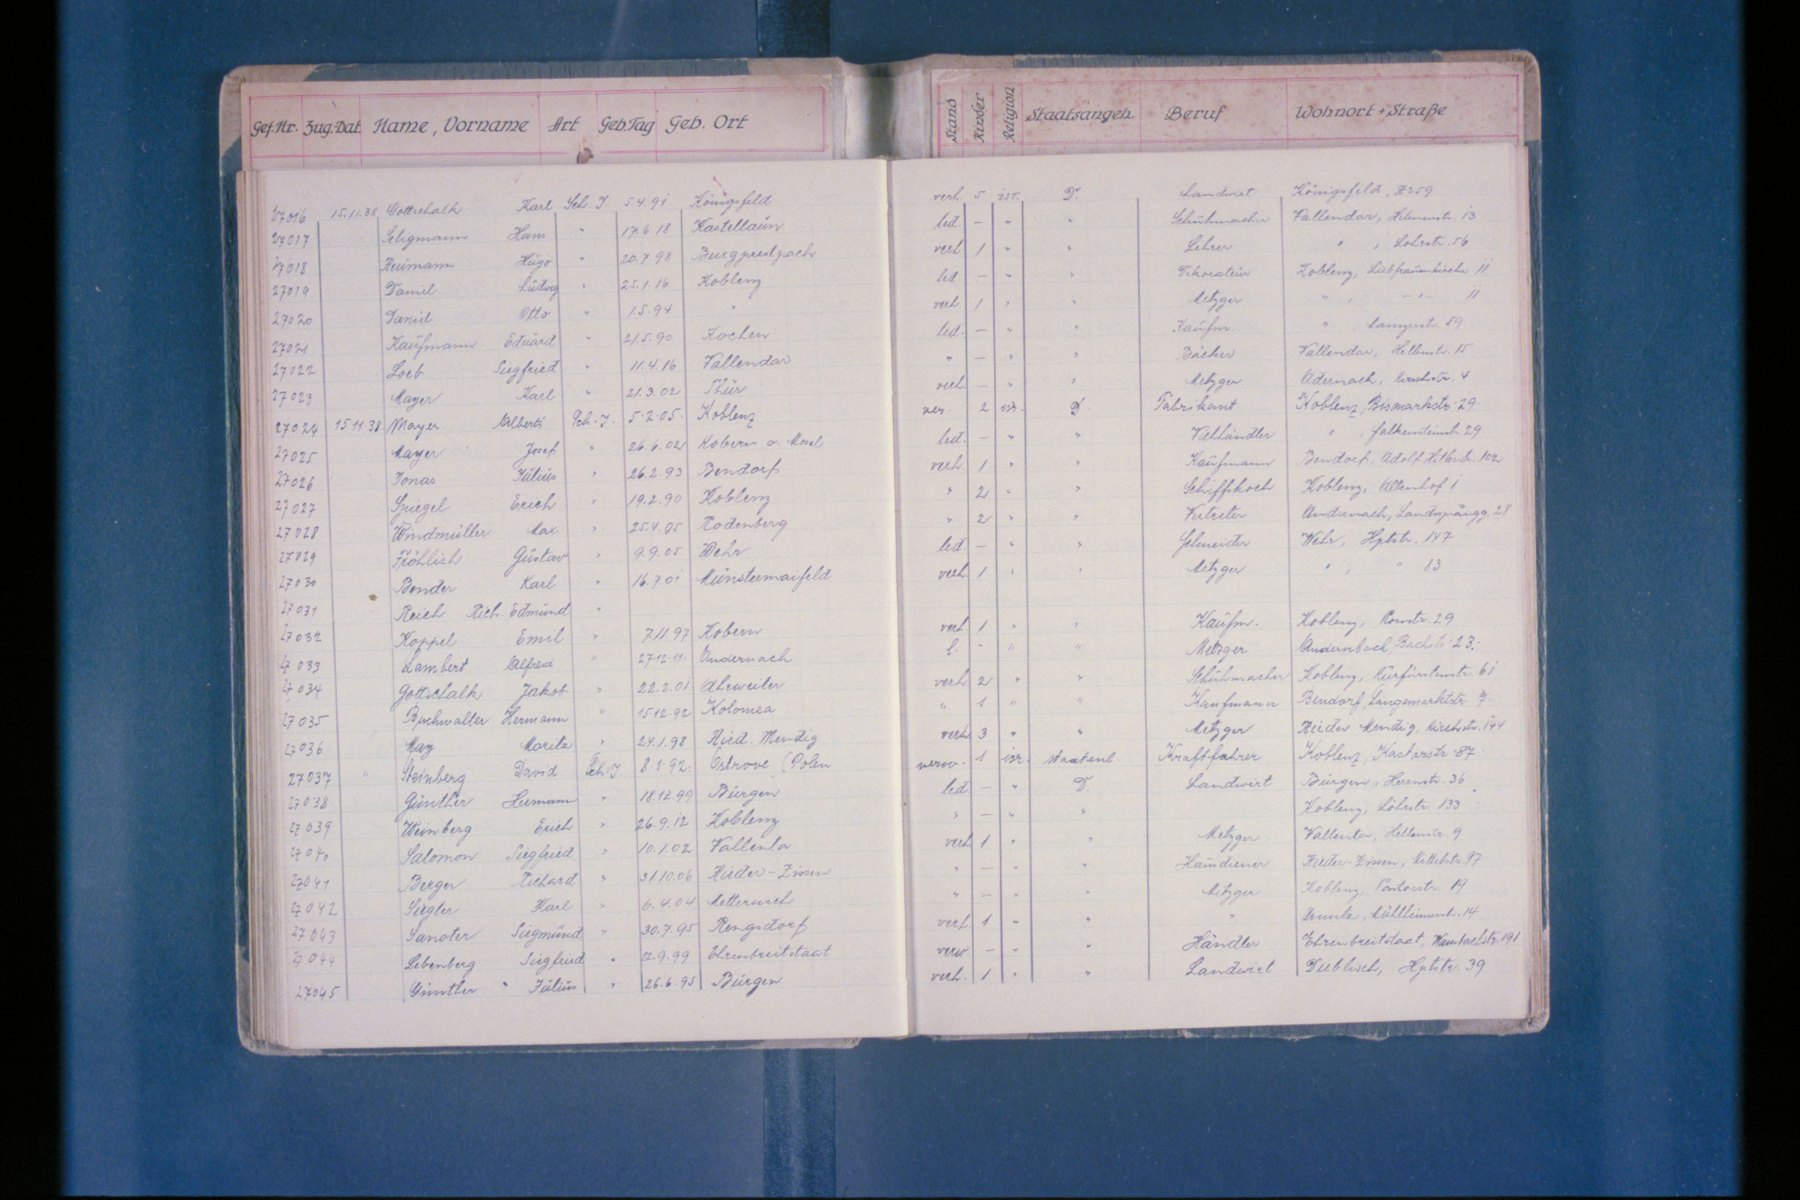 Gef.Nr. Zug.Dat. Name, Vorname Art Geb.Tag Geb. Ort Stand Kinder Religion Staatsangeh. Beruf Wohnort + Straße
27016 15.11.38 Gottschalk Karl Sch. J 5.4.91 Königsfeld verh. 5 isr. D. Landwirt Königsfeld, 259
27017 Seligmann Hans " 17.6.18 Kastellaun led. — " " Schuhmacher Vallendar, 13
27018 Neumann Hugo " 20.7.98 verh. 1 " " Lehrer " , Löhrstr. 56
27019 Daniel Ludwig " 25.1.16 Koblenz led. — " " Dekorateur Koblenz, Liebfrauenkirche 11
27020 Daniel Otto " 1.5.94 " verh. 1 " " Metzger " , — " — 11
27021 Kaufmann Eduard " 21.5.90 Kochen led. — " " Kaufm. " , 59
27022 Loeb Siegfried " 11.4.16 Vallendar " — " " Bäcker Vallendar, Hellenstr. 15
27023 Mayer Karl " 21.3.02 Thür verh. — " " Metzger Adernach, Kirchstr. 4
27024 15.11.38 Mayer Albert Sch. J. 5.2.05. Koblenz ver. 2 isr. D. Fabrikant Koblenz, Bismarkstr. 29
27025 Mayer Josef " 26.6.02 Kobern a. Mosel led. — " " Viehhändler " , Falkensteinstr. 29
27026 Jonas Julius " 26.2.93 Bendorf verh. 1 " " Kaufmann Bendorf, Adolf Hitlerstr. 102
27027 Spiegel Erich " 19.2.90 Koblenz " 2 " " Schiffskoch Koblenz, Altenhof 1
27028 Windmüller Max " 25.4.05 Rodenberg " 2 " " Vertreter Andernach, 28
27029 Fröhlich Gustav " 9.9.05 Wehr led. — " " Schneider Wehr, Hptstr. 147
27030 Bender Karl " 16.7.01 Münstermaifeld verh. 1 " " Metzger " , " 83
27031 Reich Rich. Edmund "
27032 Koppel Emil " 7.11.97 Kobern verh. 1 " " Kaufm. Koblenz, 29
27033 Lambert Alfred " 27.12.11. Andernach l. - " " Metzger Andernach, Bachstr. 23.
27034 Gottschalk Jakob " 22.2.01 Ahrweiler verh. 2 " " Schuhmacher Koblenz, Kürfürstenstr. 61
27035 Hermann " 15.12.92 Kolomea " 1 " " Kaufmann Bendorf, Langemarktstr. 7.
27036 May Moritz " 24.1.98 Nied. Mendig verh. 3 " " Metzger Nieder Mendig, Kirchstr. 144
27037 " Steinberg David Sch. J. 8.1.92. Ostrove (Polen verw. 1 isr. staatenl. Kraftfahrer Koblenz, Kastorstr. 87
27038 Günther Hermann " 18.12.99 Bürgen led. — " D. Landwirt Bürgen, Herrenstr. 36
27039 Weinberg Erich " 26.9.12 Koblenz " — " " Koblenz, Löhrstr. 133
27040 Salomon Siegfried " 10.1.02 Vallenta verh. 1 " " Metzger Vallenta, Hellenstr. 9
27041 Berger Richard " 31.10.06 Nieder-Zissen " — " " Hausdiener Nieder-Zissen, 97
27042 Siegler Karl " 6.4.04 Metternich " — " " Metzger Koblenz, 19
27043 Siegmund " 30.7.95 Rengsdorf verh. 1 " " " 14
27044 Lebenberg Siegfried " 12.9.99 Ehrenbreitstaat verw. — " " Händler Ehrenbreitstaat, 191
27045 Günther " Julius " 26.6.95 Bürgen verh. 1 " " Landwirt Dieblisch, Hptstr. 39